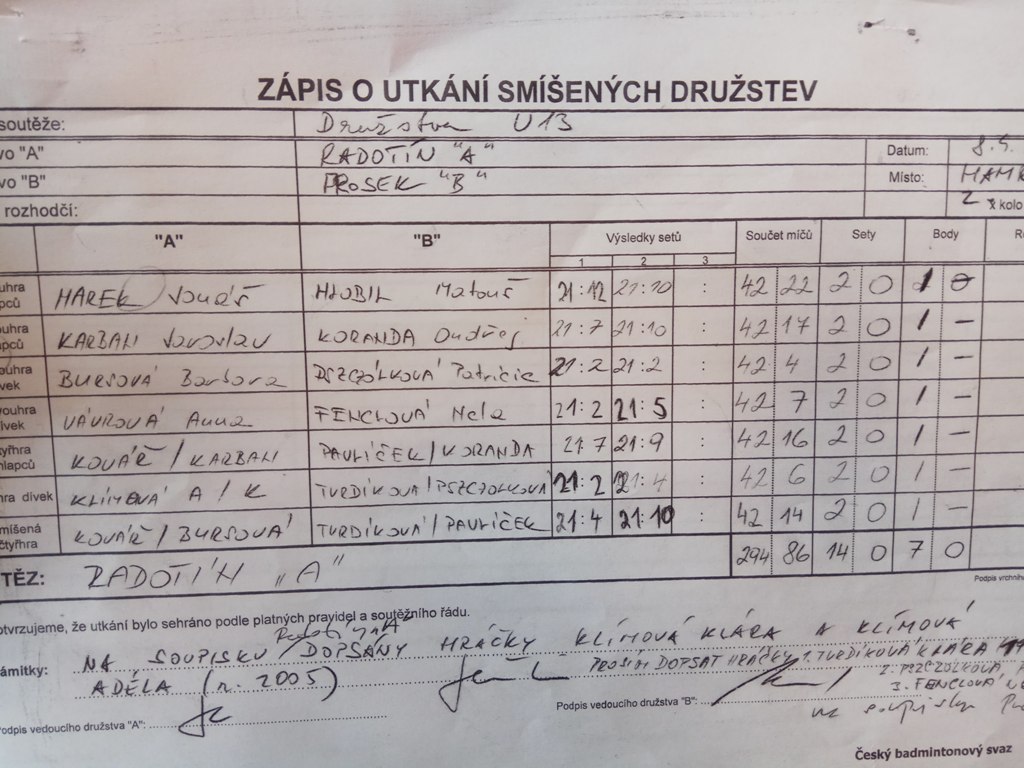 ZÁPIS O UTKÁNÍ SMÍŠENÝCH DRUŽSTEV
soutěže: Družstva U13
vo "A" RADOTÍN "A" Datum: 8.4.
vo "B" PROSEK "B" Místo: HAMR
rozhodčí: 2 kolo
"A" "B" Výsledky setů Součet míčů Sety Body
1 2 3
ouhra pců HAREK HLOBIL Matouš 21:12 21:10 : 42 22 2 0 1 0
ouhra apců KARBAN Jaroslav KORANDA Ondřej 21:7 21:10 : 42 17 2 0 1 –
ouhra vek BURSOVÁ Barbora PSZCZÓLKOVÁ Patricie 21:2 21:2 : 42 4 2 0 1 –
vouhra ívek VÁVROVÁ Anna FENCLOVÁ Nela 21:2 21:5 : 42 7 2 0 1 –
tyřhra hlapců KOVÁŘ / KARBAN PAVLÍČEK / KORANDA 21:7 21:9 : 42 16 2 0 1 –
hra dívek KLÍMOVÁ A / K TVRDÍKOVÁ / PSZCZOLKOVÁ 21:2 21:4 : 42 6 2 0 1 –
míšená čtyřhra KOVÁŘ / BURSOVÁ TVRDÍKOVÁ / PAVLÍČEK 21:4 21:10 : 42 14 2 0 1 –
TĚZ: RADOTÍN „A" 294 86 14 0 7 0
Podpis vrchního
otvrzujeme, že utkání bylo sehráno podle platných pravidel a soutěžního řádu.
Radotín "A"
ámitky: NA SOUPISKU DOPSÁNY HRÁČKY KLÍMOVÁ KLÁRA A KLÍMOVÁ
ADÉLA (n. 2005) PROSÍM DOPSAT HRÁČKY 1. TVRDÍKOVÁ KLÁRA
2. PSZCZOLKOVÁ P
3. FENCLOVÁ
na soupisku
Podpis vedoucího družstva "A": Podpis vedoucího družstva "B":
Český badmintonový svaz